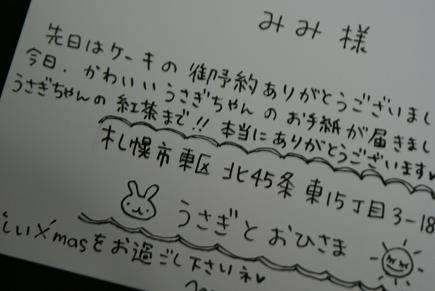 みみ様
先日はケーキの御予約ありがとうございまし
今日、かわいいうさぎちゃんのお手紙が届きまし
うさぎちゃんの紅茶まで!! 本当にありがとうございます♥
札幌市東区北45条東15丁目3-18
うさぎとおひさま
しいXmasをお過ごし下さいネ♥